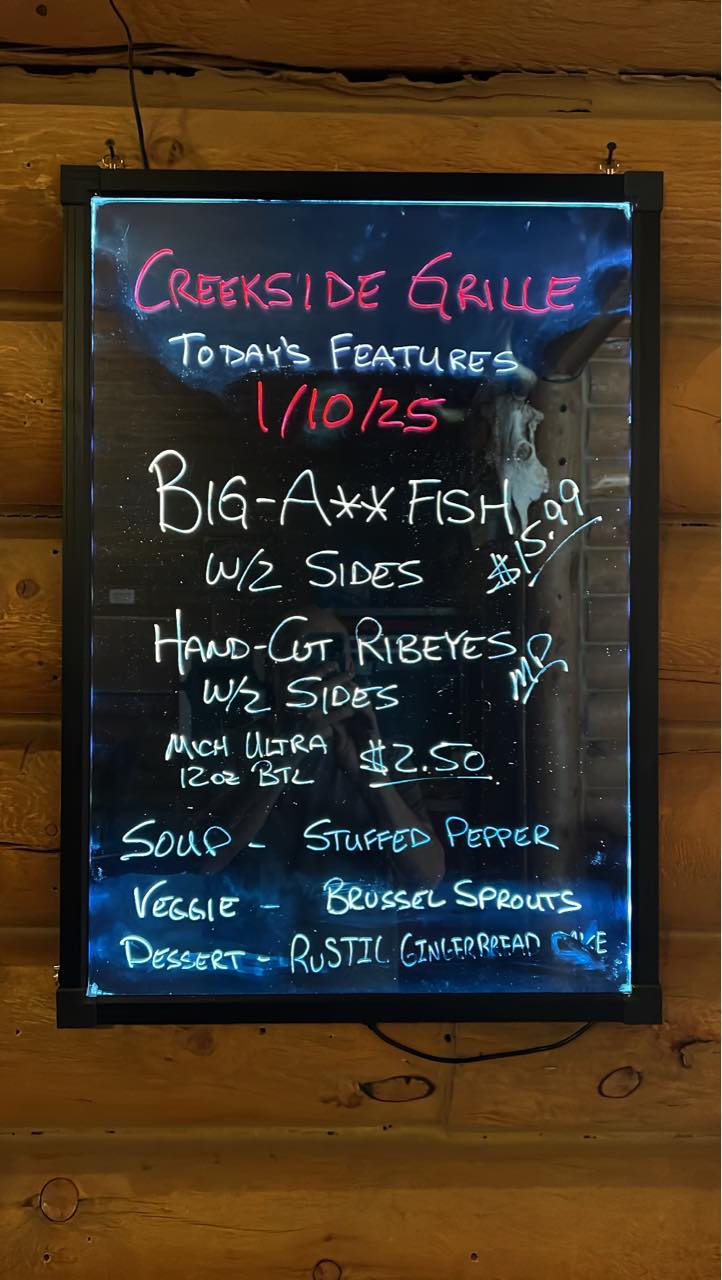 CREEKSIDE GRILLE
TODAY'S FEATURES
1/10/25
BIG-A** FISH $15.99
W/2 SIDES
HAND-CUT RIBEYES MP
W/2 SIDES
MICH ULTRA $2.50
12OZ BTL
SOUP - STUFFED PEPPER
VEGGIE - BRUSSEL SPROUTS
DESSERT - RUSTIC GINGERBREAD CAKE